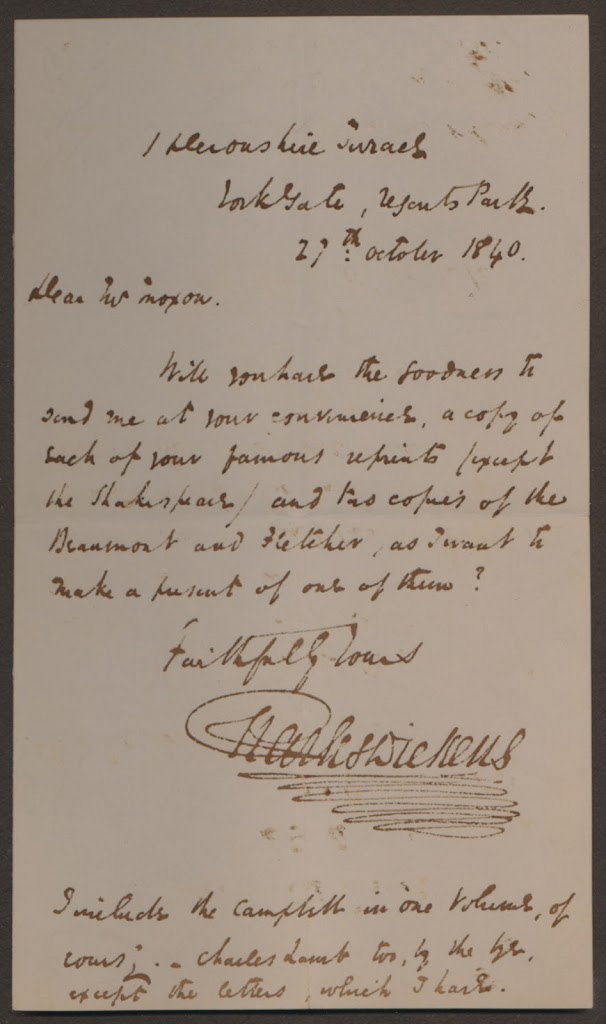 1 Devonshire Terrace
York Gate, Regents Park.
27th. October 1840.
Dear Mr Moxon.
Will you have the goodness to
send me at your convenience, a copy of
each of your famous reprints (except
the Shakespeare) and two copies of the
Beaumont and Fletcher, as I want to
make a present of one of them?
Faithfully Yours
Charles Dickens
I include the Campbell in one Volume, of
course. - Charles Lamb too, by the bye,
except the letters, which I have.